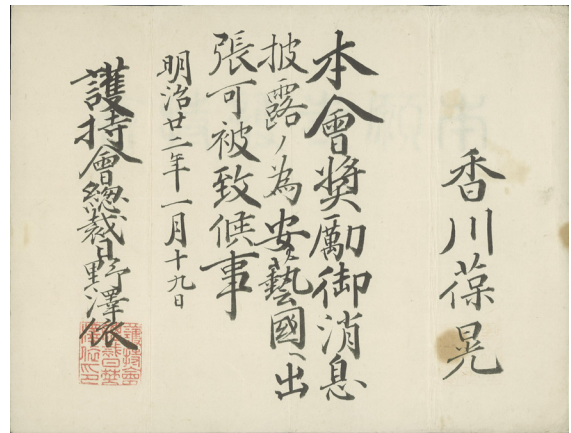 香川葆晃
本會奬勵御消息
披露ノ為安藝國ヘ出
張可被致候事
明治廿二年一月十九日
護持會總裁日野澤依